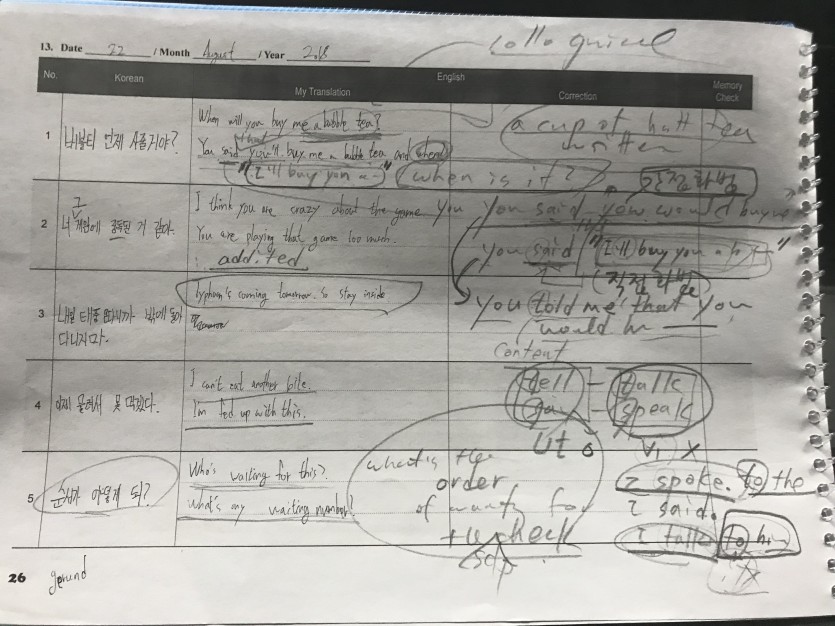 collo quieel
13. Date 22 / Month August / Year 2018
No. Korean English Memory Check
My Translation Correction
1 버블티 언제 사줄거야?
When will you buy me a bubble tea?
that
You said you'll buy me a bubble tea and when?
"I'll buy you a~" when is it?
a cup of
written
간접화법
2 너 그 게임에 중독된 거 같다.
I think you are crazy about the game you
You are playing that game too much.
addicted
You said you would buy me
You said "I'll buy you a b t"
직접화법
3 내일 태풍 온다니까 밖에 돌아
다니지마.
Typhoon's coming tomorrow. So stay inside
tomorrow
You told me that you
would
Content
4 이제 물려서 못 먹겠다.
I can't eat another bite.
I'm fed up with this.
tell - talk
say - speak
5 순서가 어떻게 돼?
Who's waiting for this?
What's my waiting number?
what's the
order
of for
check
I spoke. to the
I said.
I talk to him
26 gerund